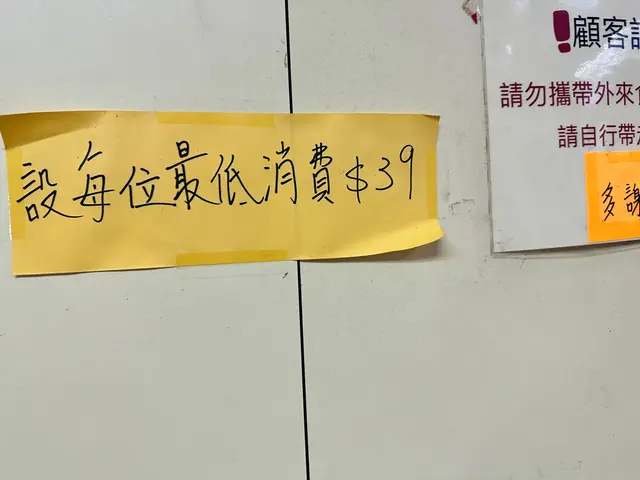 設每位最低消費$39
❗顧客請
請勿攜帶外來食
請自行帶走
多謝